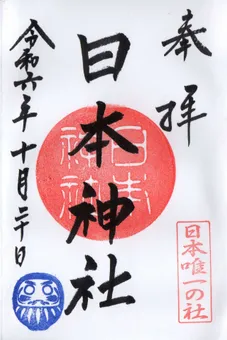 奉拝
日本神社
日本神社
日本唯一の社
令和六年十月二十日